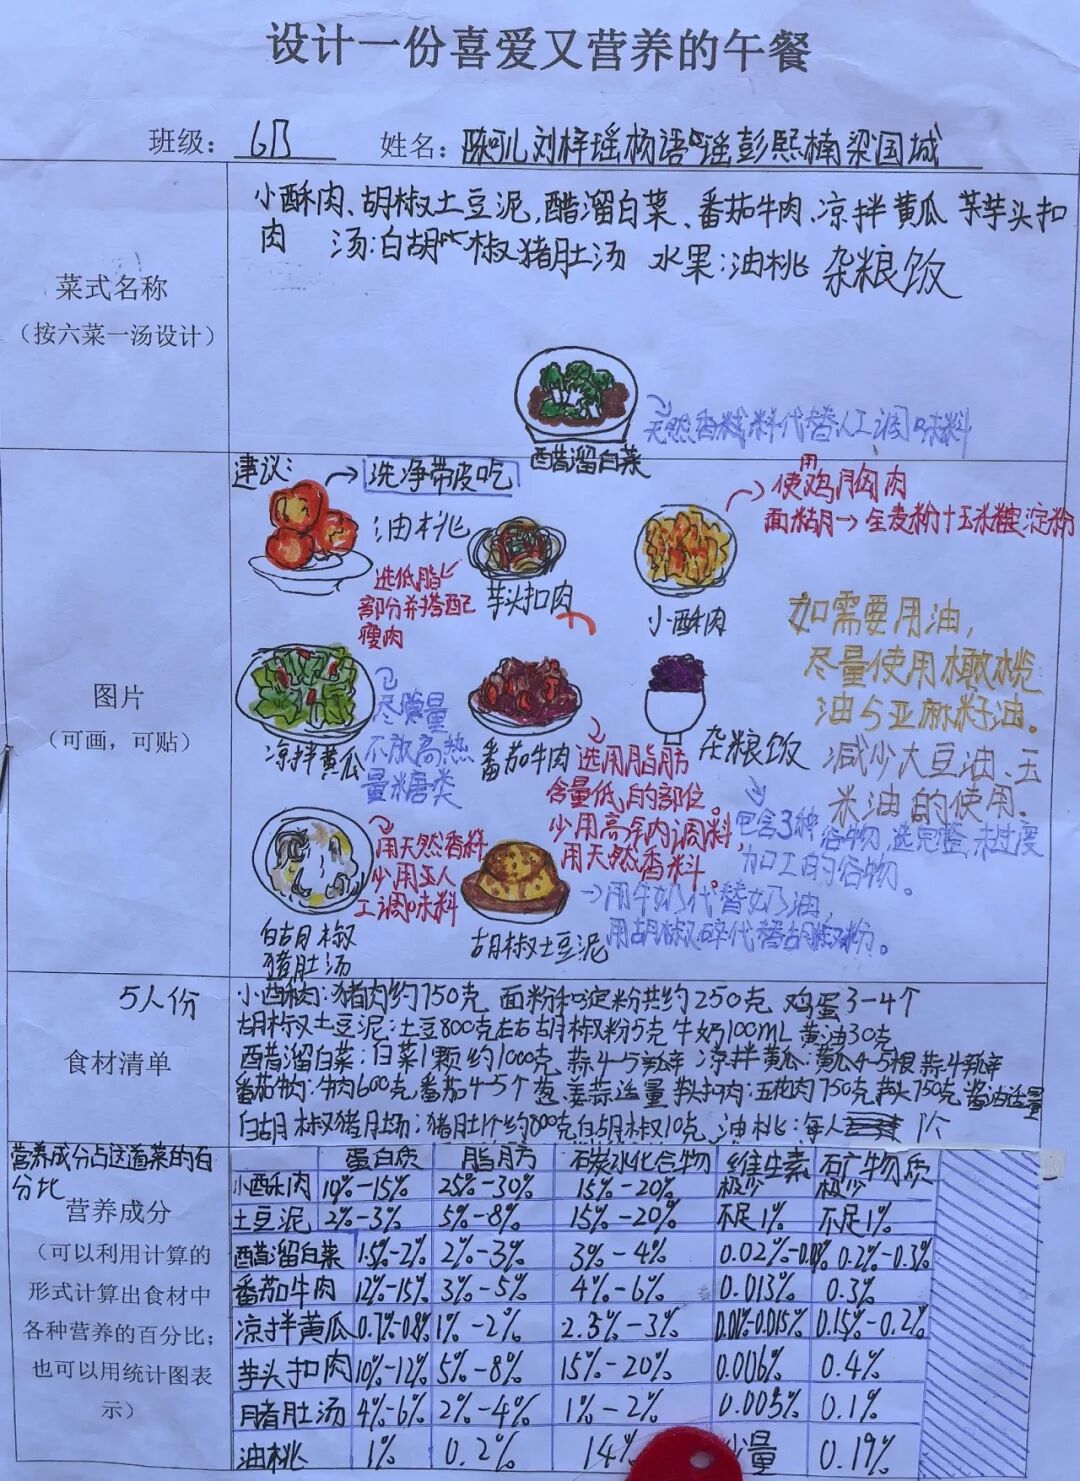 设计一份喜爱又营养的午餐
班级：6B 姓名：陈 刘梓瑶 杨语瑶 彭熙楠 梁国城
小酥肉、胡椒土豆泥,醋溜白菜、番茄牛肉、凉拌黄瓜 芋头扣
肉 汤:白胡椒猪肚汤 水果:油桃 杂粮饭
菜式名称
（按六菜一汤设计）
天然香料代替人工调味料
醋溜白菜
建议:
洗净带皮吃
油桃
选低脂
部分并搭配
瘦肉
芋头扣肉
使用鸡胸肉
面糊→全麦粉+玉米淀粉
小酥肉
如需要用油，
尽量使用橄榄
油与亚麻籽油。
减少大豆油、玉
米油的使用。
图片
（可画，可贴）
凉拌黄瓜
尽量
不放高热
量糖类
番茄牛肉
选用脂肪
含量低的部位。
少用高钠调料,
用天然香料。
杂粮饭
包含3种谷物,选完整,未过度
加工的谷物。
白胡椒
猪肚汤
用天然香料
少用人
工调味料
胡椒土豆泥
→用牛奶代替奶油,
用胡椒碎代替胡椒粉。
5人份
食材清单
小酥肉:猪肉约750克 面粉和淀粉共约250克 鸡蛋3-4个
胡椒土豆泥:土豆800克左右 胡椒粉5克 牛奶100mL 黄油30克
醋溜白菜:白菜1颗约1000克 蒜4-5瓣 凉拌黄瓜:黄瓜4-5根 蒜4瓣
番茄牛肉:牛肉600克,番茄4-5个 葱、姜蒜适量 芋头扣肉:五花肉750克 芋头750克 酱油适量
白胡椒猪肚汤:猪肚1个约800克 白胡椒10克 油桃:每人1个
营养成分占这道菜的百
分比
营养成分
（可以利用计算的
形式计算出食材中
各种营养的百分比；
也可以用统计图表
示）
蛋白质 脂肪 碳水化合物 维生素 矿物质
小酥肉 10%-15% 25%-30% 15%-20% 极少 极少
土豆泥 2%-3% 5%-8% 15%-20% 不足1% 不足1%
醋溜白菜 1.5%-2% 2%-3% 3%-4% 0.02%- 0.2%-0.3%
番茄牛肉 12%-15% 3%-5% 4%-6% 0.013% 0.3%
凉拌黄瓜 0.7%-0.8% 1%-2% 2.5%-3% 0.01%-0.015% 0.15%-0.2%
芋头扣肉 10%-12% 5%-8% 15%-20% 0.006% 0.4%
猪肚汤 4%-6% 2%-4% 1%-2% 0.005% 0.1%
油桃 1% 0.2% 14% 量 0.19%